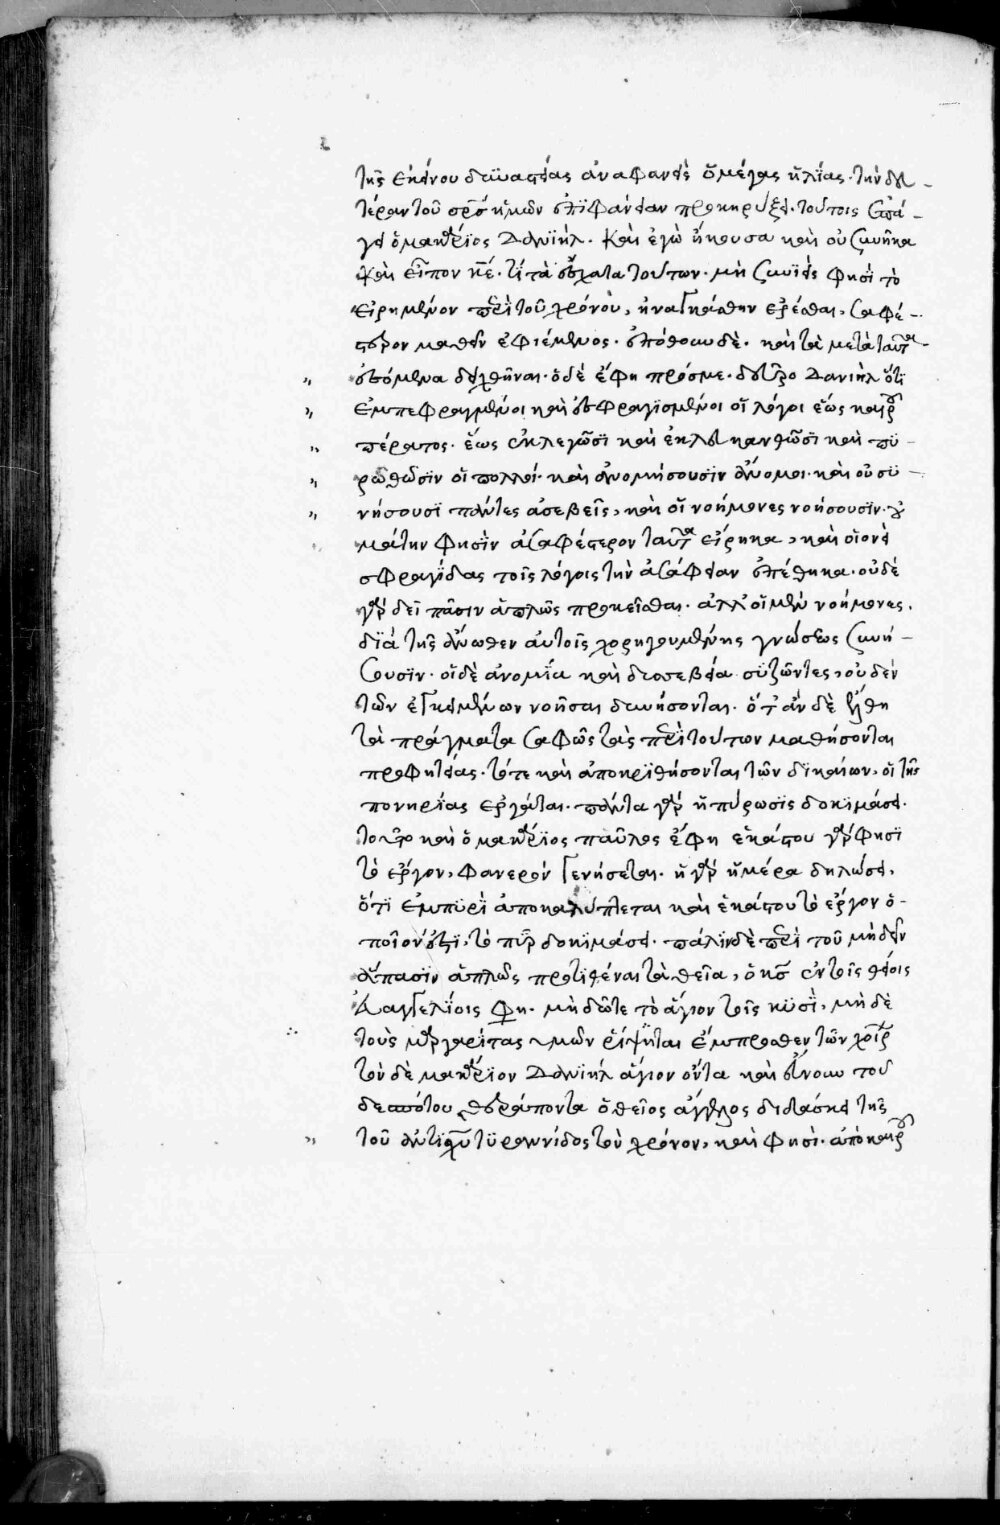 τῆς ἐκείνου δυναστείας ἀναφανεὶς ὁ μέγας ἠλίας. τὴν δευ-
τέραν τοῦ σρς ἡμῶν ἐπιφάνειαν προκηρύξει. τούτοις ἐπά-
γει ὁ μακάριος Δανιήλ. καὶ ἐγὼ ἤκουσα καὶ οὐ συνῆκα
καὶ εἶπον κε. τί τὰ ἔσχατα τούτων. μὴ συνιεὶς φησὶ τὸ
εἰρημένον περὶ τοῦ χρόνου, ἠναγκάσθην ἐρέσθαι, σαφέ-
στερον μαθεῖν ἐφιέμενος. ὑπόθου δὲ. καὶ τὰ μετὰ ταῦτα
ἐσόμενα δειχθῆναι. ὁ δὲ ἔφη πρός με. δεῦρο Δανιὴλ ὅτι
ἐμπεφραγμένοι καὶ ἐσφραγισμένοι οἱ λόγοι ἕως καιροῦ
πέρατος. ἕως ἐκλεγῶσι καὶ ἐκλευκανθῶσι καὶ πυ-
ρωθῶσιν οἱ πολλοί. καὶ ἀνομήσουσιν ἄνομοι. καὶ οὐ συ-
νήσουσι πάντες ἀσεβεῖς, καὶ οἱ νοήμονες νοήσουσιν. οὐ
μάτην φησὶν ἀσαφέστερον ταῦτα εἴρηκα, καὶ οἱονεὶ
σφραγῖδας τοῖς λόγοις τὴν ἀσάφειαν ἐπέθηκα. οὐδὲ
γὰρ δεῖ πᾶσιν ἁπλῶς προκεῖσθαι. ἀλλ' οἱ μὲν νοήμονες,
διὰ τῆς ἄνωθεν αὐτοῖς χορηγουμένης γνώσεως συνή-
σουσιν. οἱ δὲ ἀνομίᾳ καὶ δυσσεβείᾳ συζῶντες, οὐδὲν
τῶν ἐγκειμένων νοῆσαι δυνήσονται. ὅτ' ἂν δὲ ἔλθῃ
τὰ πράγματα σαφῶς τὰς περὶ τούτων μαθήσονται
προφητείας. τότε καὶ ἀποκριθήσονται τῶν δικαίων, οἱ τῆς
πονηρίας ἐργάται. πάντα γὰρ ἡ πύρωσις δοκιμάσει.
τοῦτο καὶ ὁ μακάριος παῦλος ἔφη ἑκάστου γὰρ φησὶ
τὸ ἔργον, φανερὸν γενήσεται. ἡ γὰρ ἡμέρα δηλώσει,
ὅτι ἐμπυρὶ ἀποκαλύπτεται καὶ ἑκάστου τὸ ἔργον ὁ-
ποῖον ἐστι, τὸ πῦρ δοκιμάσει. πάλιν δὲ περὶ τοῦ μὴ δεῖν
ἅπασιν ἁπλῶς προτιθέναι τὰ θεῖα, ὁ κς ἐν τοῖς θείοις
εὐαγγελίοις φη. μὴ δῶτε τὸ ἅγιον τοῖς κυσὶ, μὴ δὲ
τοὺς μαργαρίτας ὑμῶν ῥίψηται ἔμπροσθεν τῶν χοίρ
τὸν δὲ μακάριον Δανιὴλ ἅγιον ὄντα καὶ εὔνουν τοῦ
δεσπότου θεράποντα ὁ θεῖος ἄγγελος διδάσκει τῆς
τοῦ ἀντιχριστοῦ τυραννίδος τὸν χρόνον, καὶ φησὶ. ἀπὸ καιροῦ